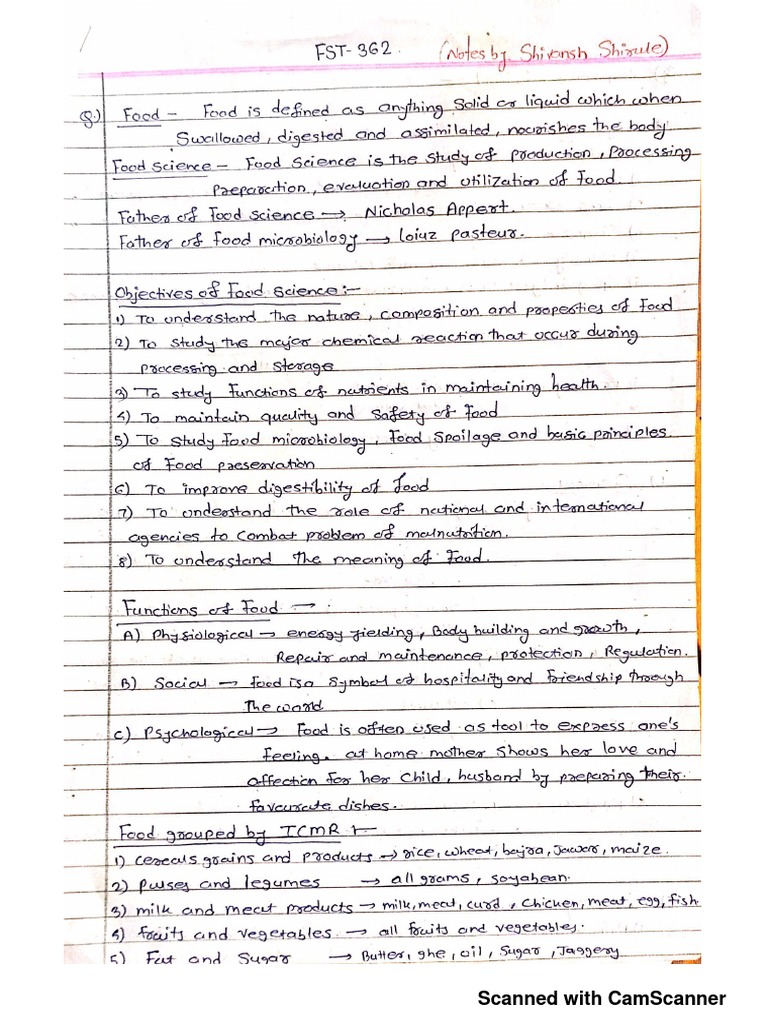 FST-362. (Notes by Shivansh Shirule)
Q.) Food - Food is defined as anything solid or liquid which when
swallowed, digested and assimilated, nourishes the body
Food science - Food Science is the study of production, Processing
Preparation, evaluation and utilization of Food.
Father of Food science → Nicholas Appert.
Father of food microbiology → loiuz pasteur.
Objectives of Food science:-
1) To understand the nature, composition and properties of Food
2) To study the major chemical reaction that occur during
processing and storage
3) To study Functions of nutrients in maintaining health.
4) To maintain quality and safety of Food
5) To study Food microbiology, Food spoilage and basic principles
of Food preservation
6) To improve digestibility of food
7) To understand the role of national and international
agencies to combat problem of malnutrition.
8) To understand the meaning of Food.
Functions of Food →
A) Physiological → energy yielding, Body building and growth,
Repair and maintenance, protection, Regulation.
B) Social → food is a symbol of hospitality and friendship through
the world
C) Psychological → Food is often used as tool to express one's
feeling. at home mother shows her love and
affection for her child, husband by preparing their
favourate dishes.
Food grouped by ICMR :-
1) cereals grains and products → rice, wheat, bajra, Jawar, maize.
2) pulses and legumes → all grams, soyabean.
3) milk and meat products → milk, meat, curd, chicken, meat, egg, fish
4) fruits and vegetables → all fruits and vegetables.
5) Fat and Sugar → Butter, ghe, oil, Sugar, Jaggery
Scanned with CamScanner